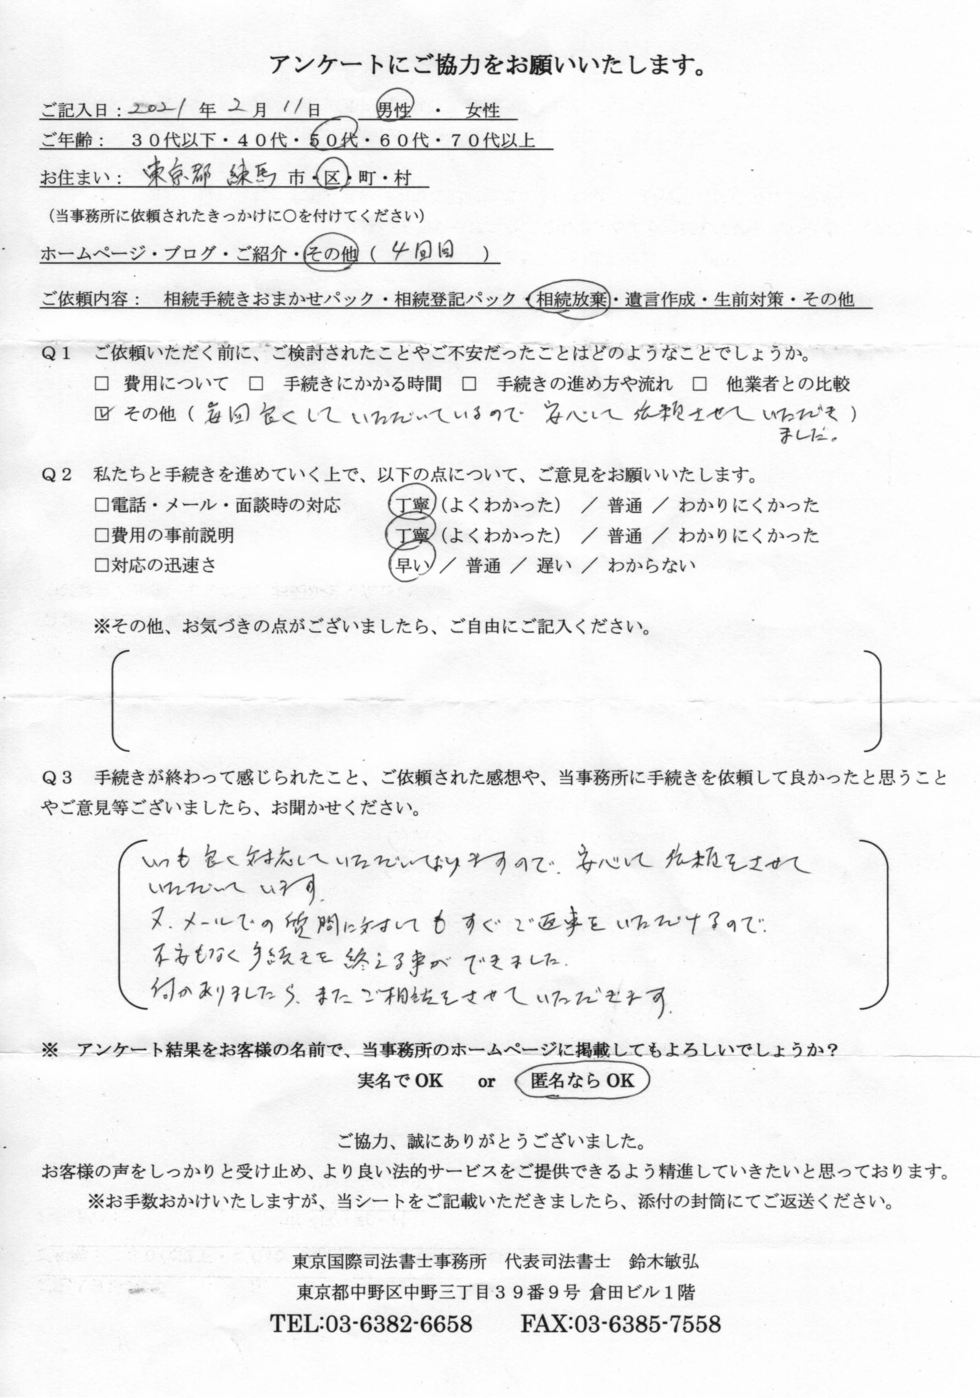 アンケートにご協力をお願いいたします。
ご記入日：2021 年 2 月 11日　男性 ・ 女性
ご年齢：　３０代以下・４０代・５０代・６０代・７０代以上
お住まい：　東京都 練馬 市・区・町・村
（当事務所に依頼されたきっかけに〇を付けてください）
ホームページ・ブログ・ご紹介・その他（ 4回目 ）
ご依頼内容：　相続手続きおまかせパック・相続登記パック・相続放棄・遺言作成・生前対策・その他
Ｑ１　ご依頼いただく前に、ご検討されたことやご不安だったことはどのようなことでしょうか。
□ 費用について □ 手続きにかかる時間 □ 手続きの進め方や流れ □ 他業者との比較
☑ その他（毎回良くしていただいているので 安心して依頼させていただき）
ました。
Ｑ２　私たちと手続きを進めていく上で、以下の点について、ご意見をお願いいたします。
□電話・メール・面談時の対応　丁寧（よくわかった） ／ 普通 ／ わかりにくかった
□費用の事前説明　丁寧（よくわかった） ／ 普通 ／ わかりにくかった
□対応の迅速さ　早い ／ 普通 ／ 遅い ／ わからない
※その他、お気づきの点がございましたら、ご自由にご記入ください。
Ｑ３　手続きが終わって感じられたこと、ご依頼された感想や、当事務所に手続きを依頼して良かったと思うこと
やご意見等ございましたら、お聞かせください。
いつも良く対応していただいておりますので、安心して依頼をさせて
いただいています。
又、メールでの質問に対してもすぐご返事をいただけるので、
不安もなく手続きを終える事ができました。
何かありましたら、またご相談をさせていただきます。
※　アンケート結果をお客様の名前で、当事務所のホームページに掲載してもよろしいでしょうか？
実名でOK　or　匿名ならOK
ご協力、誠にありがとうございました。
お客様の声をしっかりと受け止め、より良い法的サービスをご提供できるよう精進していきたいと思っております。
※お手数おかけいたしますが、当シートをご記載いただきましたら、添付の封筒にてご返送ください。
東京国際司法書士事務所　代表司法書士　鈴木敏弘
東京都中野区中野三丁目３９番９号 倉田ビル１階
TEL:03-6382-6658　FAX:03-6385-7558